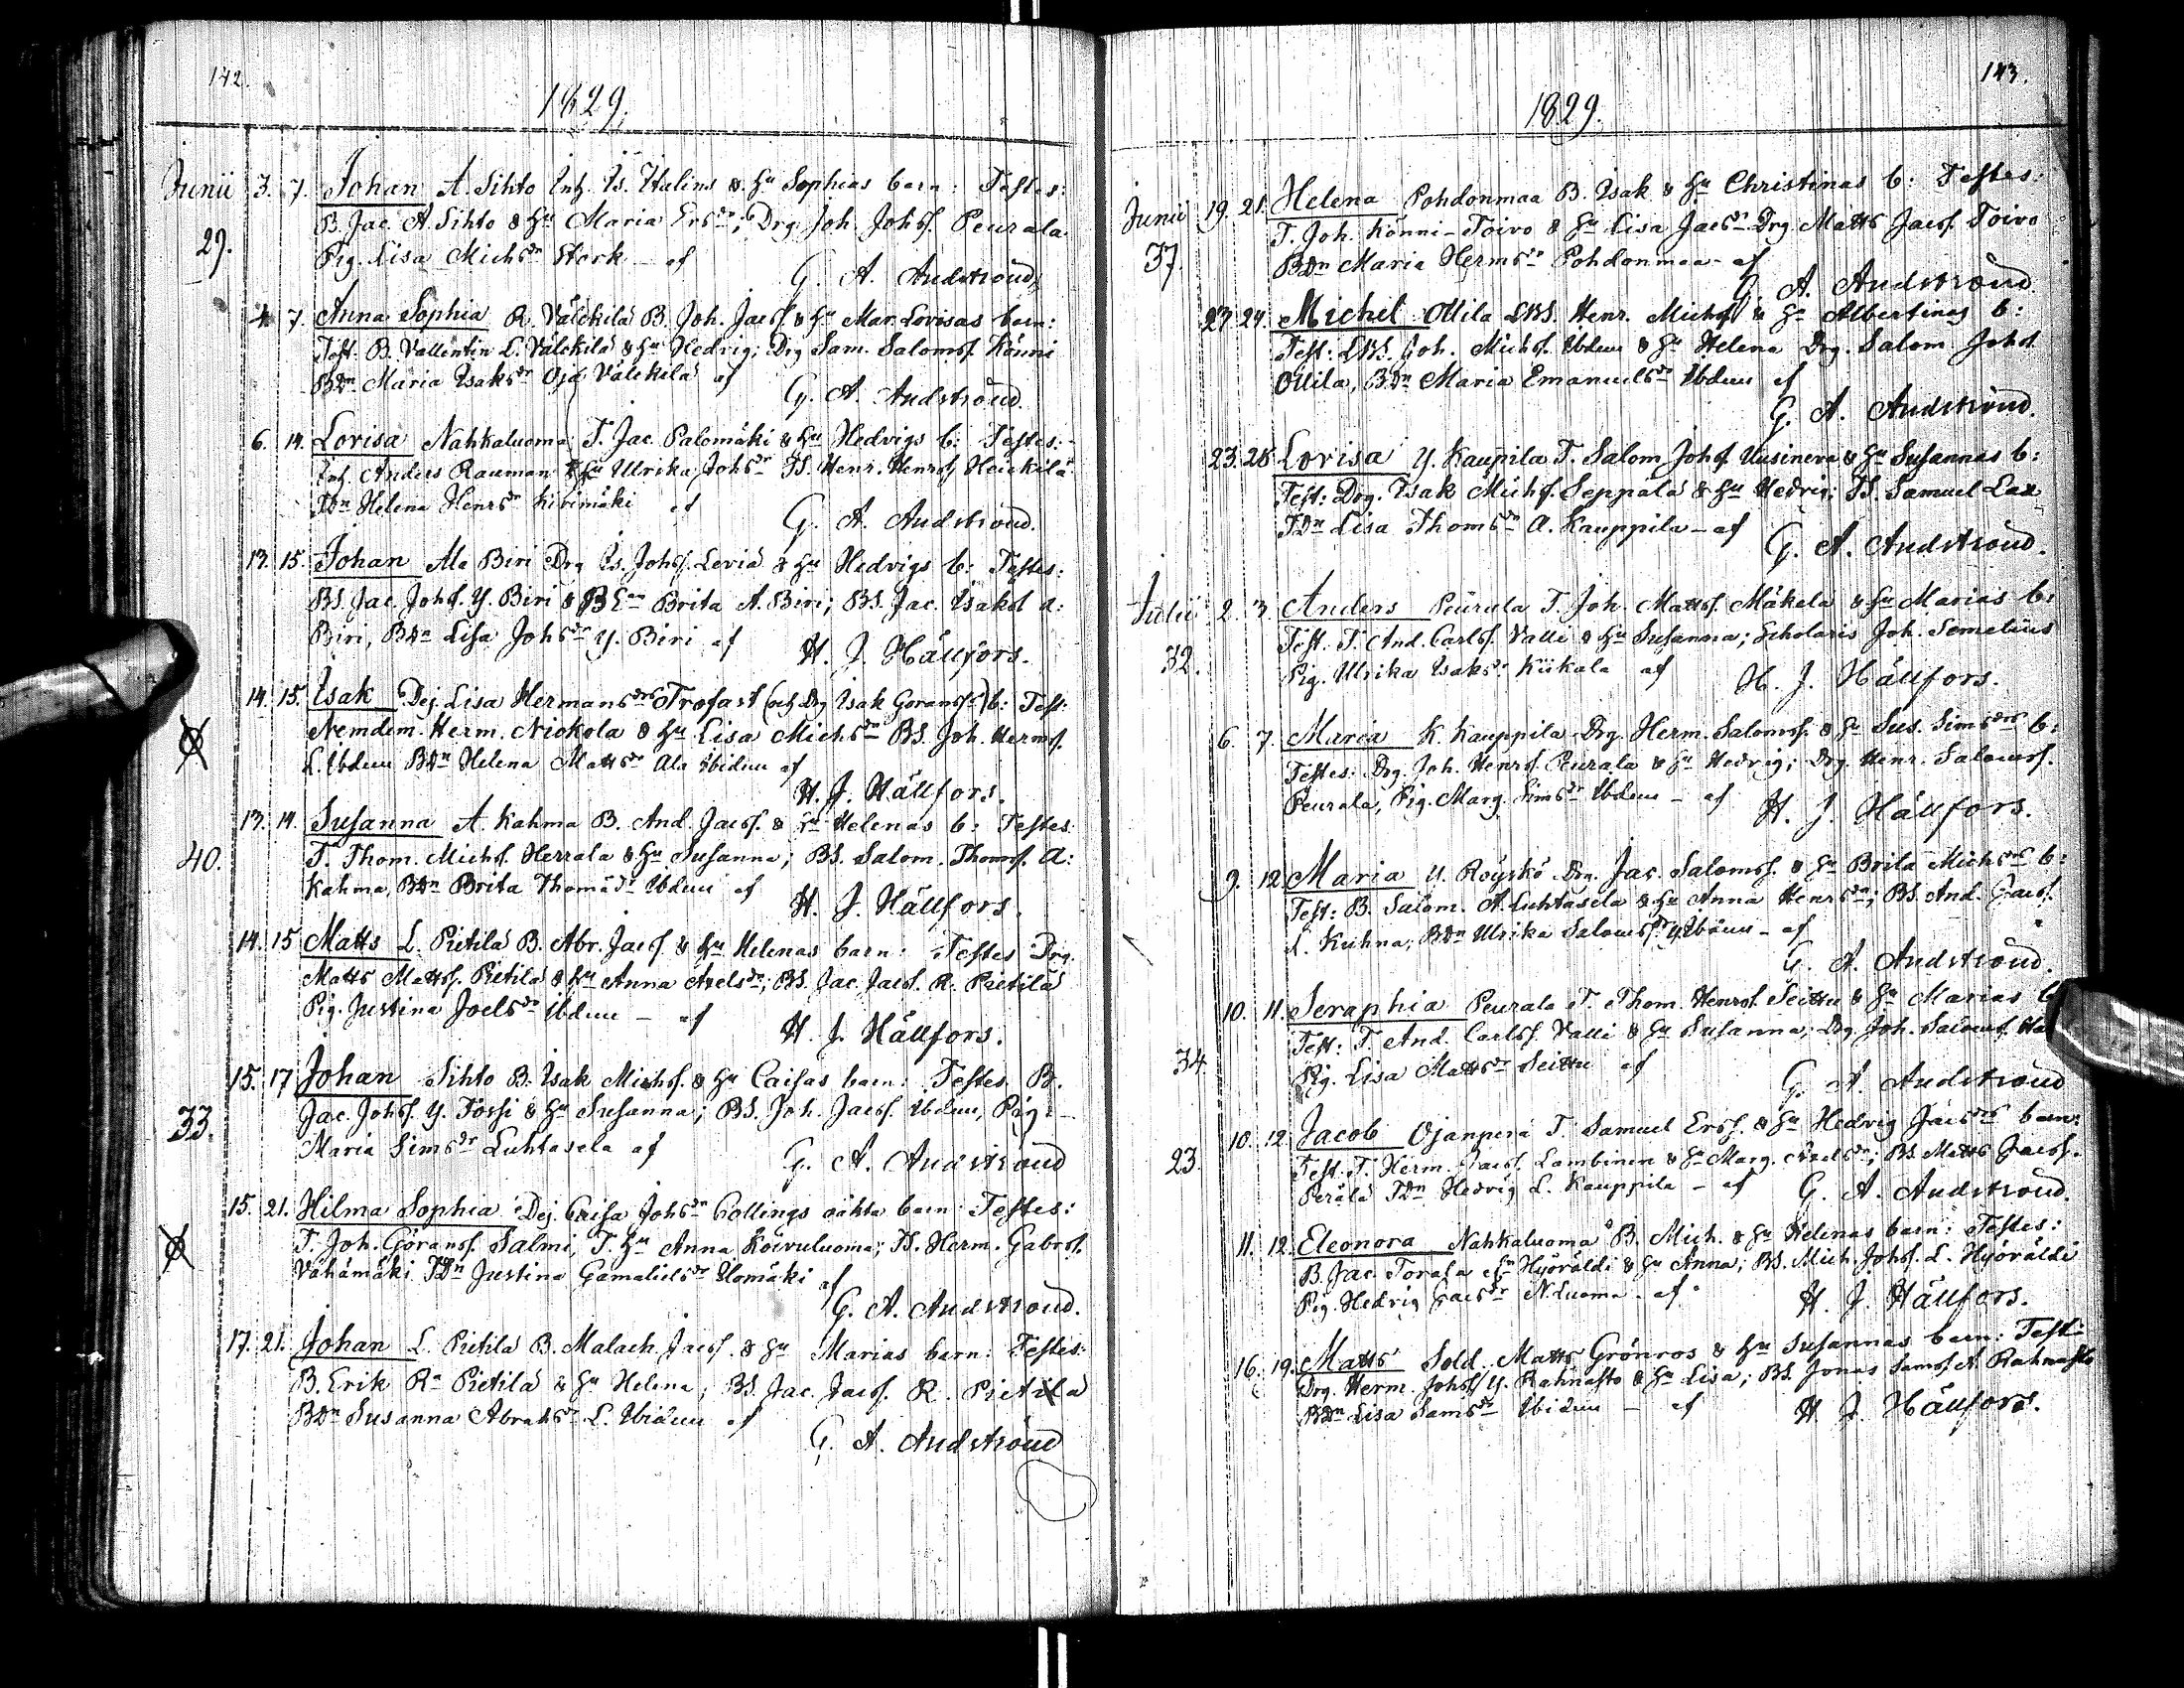 142.
1829.
Junii 3. 7. Johan A. Sihto Inh. Is. Italins & Hu Sophias barn: Testes:
29. B. Jac. A. Sihto & Hu Maria Ersdr; Drg Joh. Johss. Peurala
Pig. Lisa Michsdr Stork – af G. A. Andströud
4. 7. Anna Sophia R. Välckilä B. Joh. Jacss. & Hu Mar. Lovisas barn:
Test. B. Vallentin L. Välckilä & Hu Hedvig; Drg Sam. Salomss. Könni
BDn Maria Isaksdr Oja Välckilä af G. A. Andströud.
6. 14. Lovisa Nahkaluoma T. Jac. Palomäki & Hu Hedvigs b: Testes:
Inh. Anders Rauman & Hu Ulrika Johsdr TS. Henr. Henrss. Heickilä
TDn Helena Henrsdr Kirimäki af G. A. Andströud.
13. 15. Johan Ala Biri Drg Is. Johss. Leviä & Hu Hedvigs b: Testes:
BS. Jac. Johss. Y. Biri & BEan Brita A. Biri; BS. Jac. Isakss a:
Biri, BDn Lisa Johsdr Y. Biri af H. J. Hällfors.
14. 15. Isak Dej. Lisa Hermansdrs Trofast (och Drg Isak Goranss) b: Test:
Nemdem. Herm. Nickola & Hu Lisa Michsdr BS. Joh. Hermss.
L. Ibdem BDn Helena Mattsdr Ala Ibidem af
H. J. Hällfors.
13. 14. Susanna A. Kahma B. And. Jacss. & Hu Helenas b: Testes:
40. T. Thom. Michss. Herrala & Hu Susanna; BS. Salom. Thomss. A:
Kahma, BDn Brita Thomädr Ibdem af H. J. Hällfors.
14. 15 Matts L. Pietilä B. Abr. Jacss. & Hu Helenas barn: Testes: Drg.
Matts Mattss. Pietilä & Hu Anna Axelsdr; BS. Jac. Jacss. R. Pietilä
Pig. Justina Joelsdr Ibdem – af H. J. Hällfors.
15. 17 Johan Sihto B. Isak Michss. & Hu Caisas barn: Testes B.
33. Jac. Johss. Y. Fossi & Hu Susanna; BS. Joh. Jacss. Ibdem, Pig:
Maria Simsdr Luhtasela af G. A. Andströud
15. 21. Hilma Sophia Dej. Caisa Johsdr Collings oäkta barn Testes:
T. Joh. Göranss. Salmi, T. Hu Anna Koivuluoma; TS. Herm. Gabrss.
Vähämäki TDn Justina Gamalielsdr Ulomäki af
G. A. Andströud.
17. 21. Johan L. Pietilä B. Malach. Jacss. & Hu Marias barn: Testes:
B. Erik Rn Pietilä & Hu Helena; BS. Jac. Jacss. R. Pietilä
BDn Susanna Abrahsdr L. Ibidem af
G. A. Andströud
143.
1829.
Junii 19. 21. Helena Pohdonmaa B. Isak & Hu Christinas b: Testes:
37. T. Joh. Könni-Toivo & Hu Lisa Jacsdr Drg. Matts Jacss. Toivo
BDn Maria Hermsdr Pohdonmaa – af
G. A. Andströud.
23. 24. Michel Ollila LBS. Henr. Michss. & Hu Albertinas b:
Test: LBS. Joh. Michss. Ibdem & Hu Helena Drg. Salom. Johss
Ollila, BDn Maria Emanuelsdr Ibdem af
G. A. Andströud.
23. 28. Lovisa Y. Kauppila T. Salom. Johss. Uusineva & Hu Susannas b:
Test: Drg. Isak Michss. Seppälä & Hu Hedvig; TS. Samuel Lax
TDn Lisa Thomsdr A. Kauppila – af G. A. Andströud.
Julii 2. 3. Anders Peurala T. Joh. Mattss. Mäkelä & Hu Marias b:
32. Test. T. And. Carlss. Valli & Hu Susanna; Scholaris Joh. Semelius
Pig. Ulrika Isaksdr Kiikala af H. J. Hällfors.
6. 7. Maria K. Kauppila Drg. Herm. Salomss. & Hu Sus. Simsdrs b:
Testes: Drg. Joh. Henrss. Peurala & Hu Hedvig; Drg. Henr. Salomss.
Peurala, Pig. Marg. Simsdr Ibdem – af H. J. Hällfors.
9. 12. Maria Y. Röyskö Drg. Jac. Salomss. & Hu Brita Michsdrs b:
Test: B. Salom. A. Luhtasela & Hu Anna Henrsdr; BS. And. Jacss.
L. Kuhna; BDn Ulrika Salomsdr Y. Ibdem – af
G. A. Andströud.
10. 11. Seraphia Peurala T. Thom. Henrss. Seittu & Hu Marias b
34. Test: T. And. Carlss. Valli & Hu Susanna; Drg. Joh. Salomss.
Pig. Lisa Mattsdr Seittu af G. A. Andströud
10. 12. Jacob Ojanperä T. Samuel Erss. & Hu Hedvig Jacsdrs barn:
23. Test. T. Herm. Jacss. Lambinen & Hu Marg. Axelsdr; BS. Matts Jacss.
Perälä TDn Hedvig L. Kauppila – af G. A. Andströud.
11. 12. Eleonora Nahkaluoma B. Mich. & Hu Helenas barn: Testes:
B. Jac. Torala Hyöräldi & Hu Anna; BS. Mich. Johss. L. Hyöräldi
Pig. Hedvig Jacsdr N.luoma. af H. J. Hällfors.
16. 19. Matts Sold. Matts Grönros & Hu Susannas barn: Test:
Drg. Herm. Johss. Y. Rahnasto & Hu Lisa; BS. Jonas Samss. A. Rahnasto
BDn Lisa Samsdr Ibidem – af H. J. Hällfors.